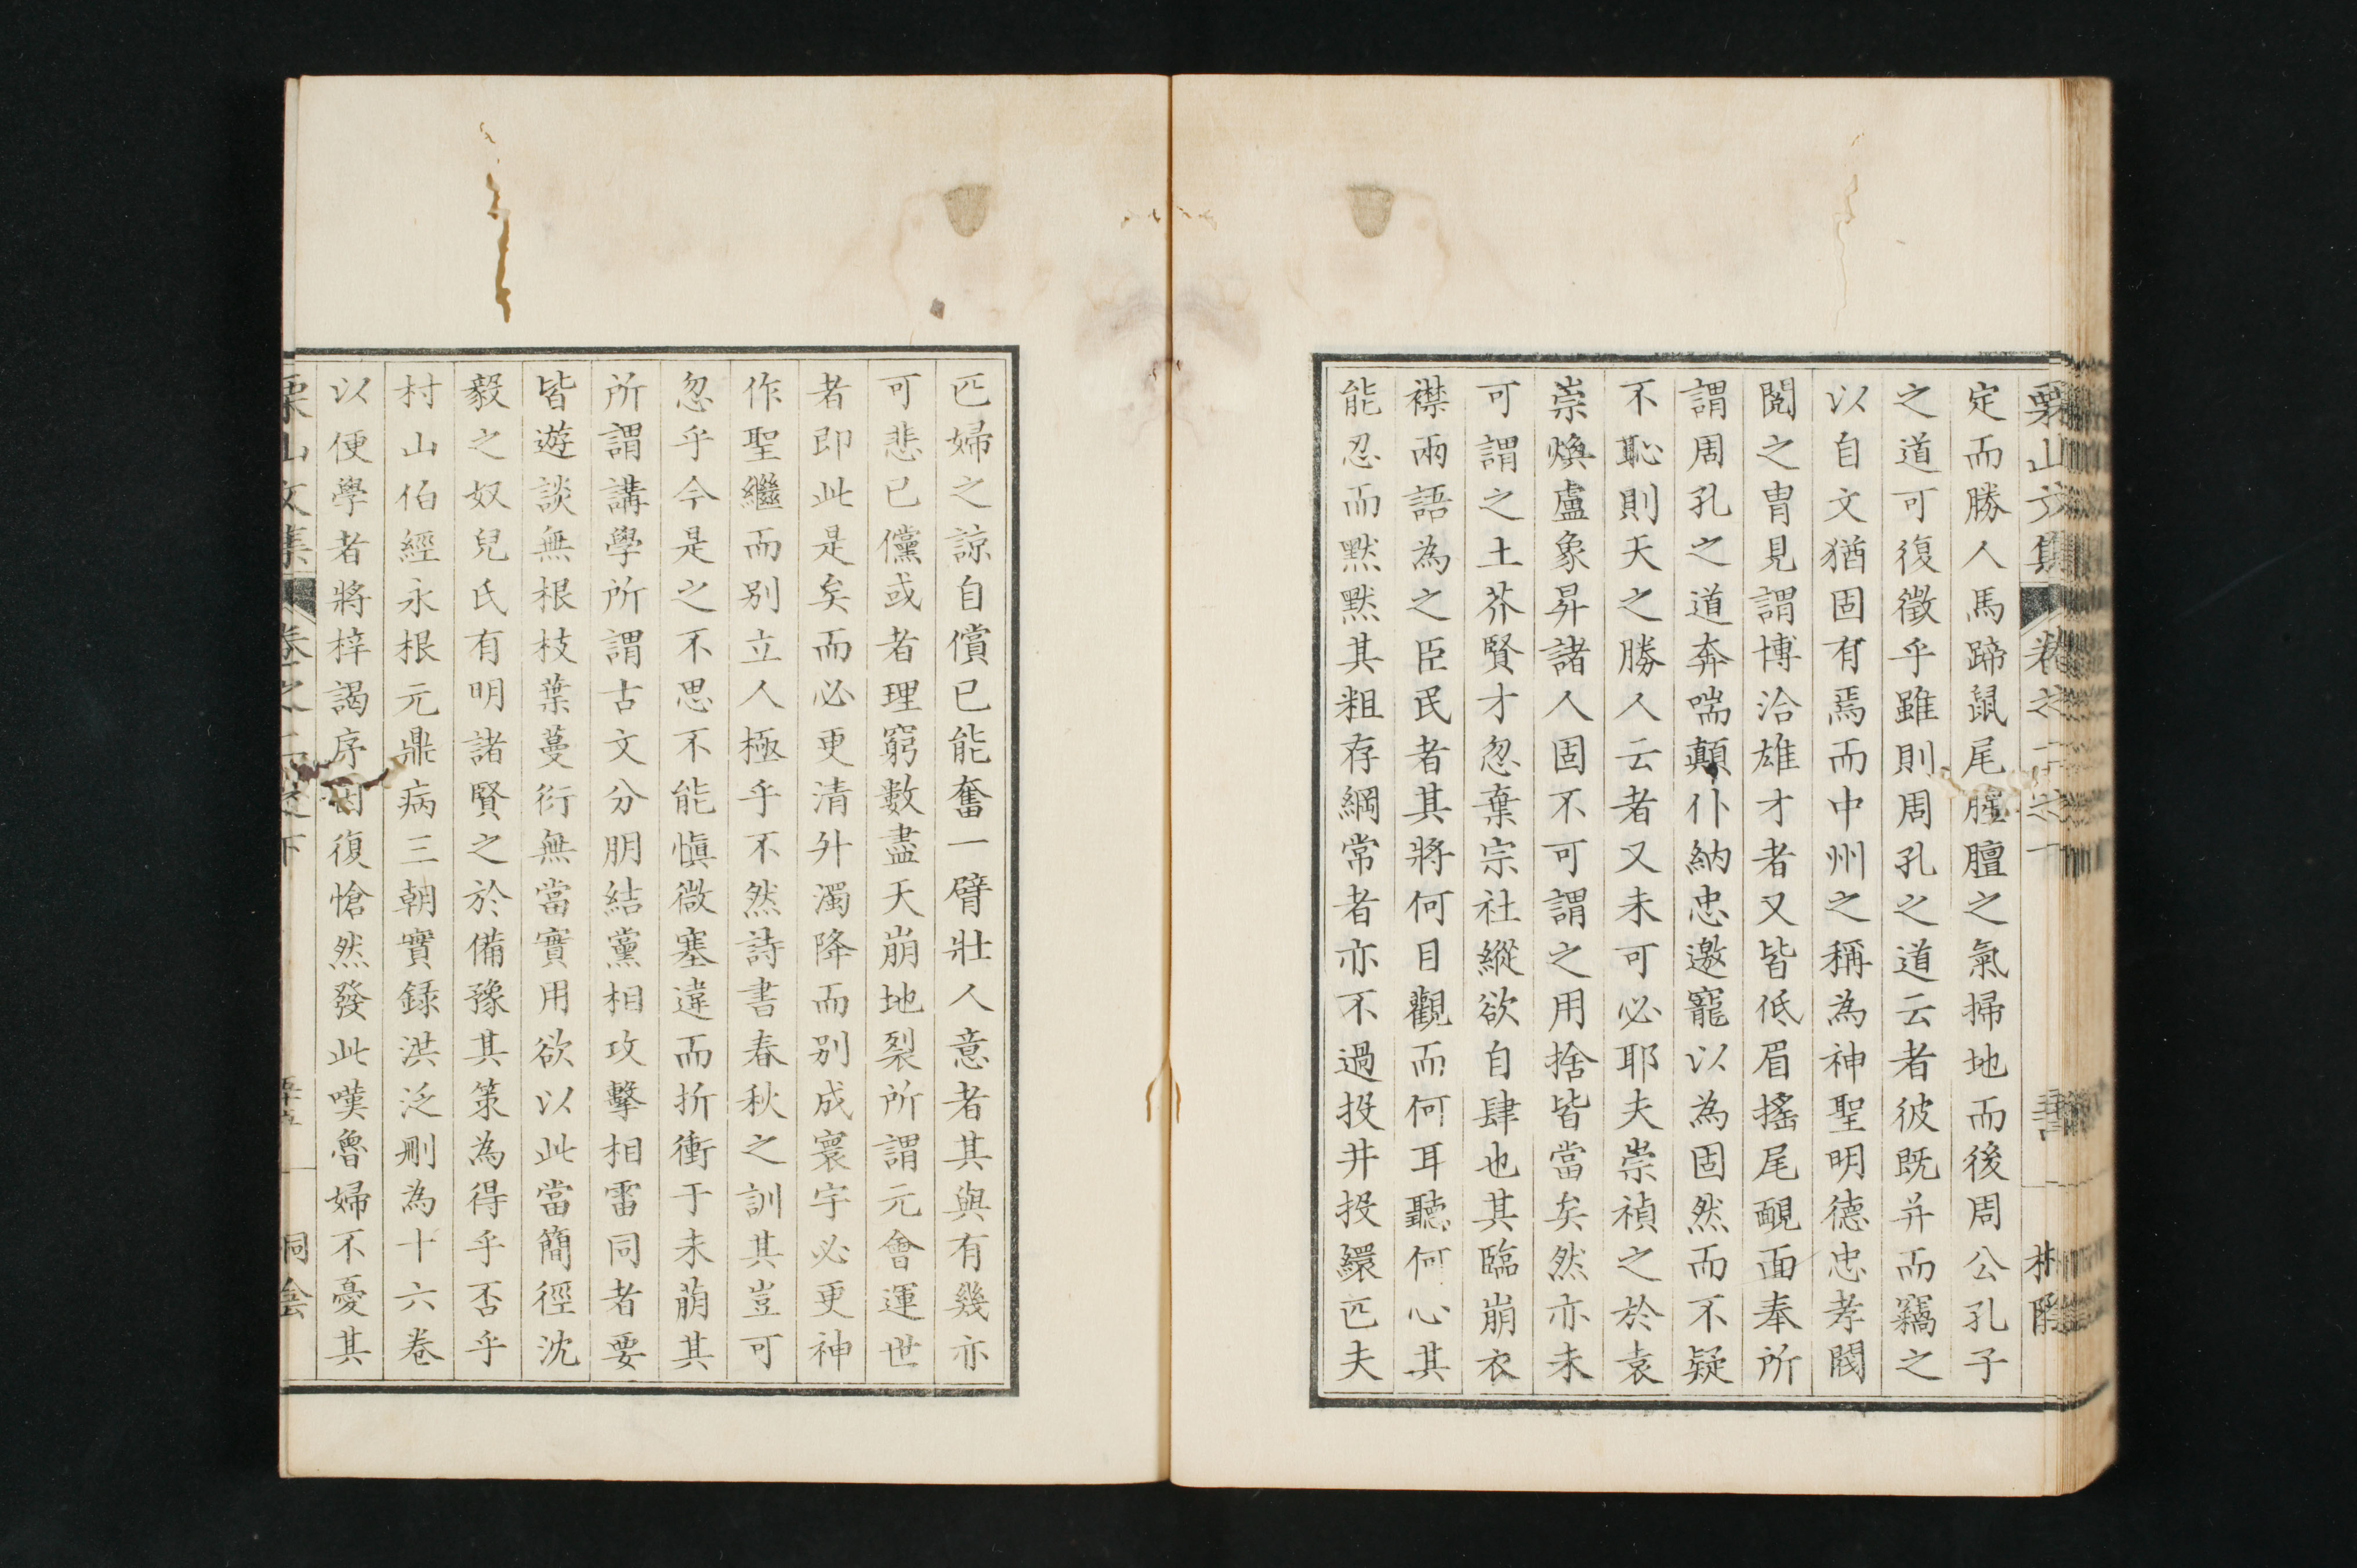 栗山文集 卷之二
定而勝人馬蹄鼠尾腥膻之氣掃地而後周公孔子
之道可復徵乎雖則周孔之道云者彼既并而竊之
以自文猶固有焉而中州之稱為神聖明德忠孝閥
閱之胄見謂博洽雄才者又皆低眉搖尾靦面奉所
謂周孔之道奔喘顛仆納忠邀寵以為固然而不疑
不恥則天之勝人云者又未可必耶夫崇禎之於袁
崇煥盧象昇諸人固不可謂之用捨皆當矣然亦未
可謂之土芥賢才忽棄宗社縱欲自肆也其臨崩衣
襟兩語為之臣民者其將何目觀而何耳聽何心其
能忍而默默其粗存綱常者亦不過投井投繯匹夫
匹婦之諒自償已能奮一臂壯人意者其與有幾亦
可悲已儻或者理窮數盡天崩地裂所謂元會運世
者即此是矣而必更清升濁降而别成寰宇必更神
作聖繼而别立人極乎不然詩書春秋之訓其豈可
忽乎今是之不思不能愼微塞違而折衝于未萠其
所謂講學所謂古文分朋結黨相攻擊相雷同者要
皆遊談無根枝葉蔓衍無當實用欲以此當簡徑沈
毅之奴兒氏有明諸賢之於備豫其策為得乎否乎
村山伯經永根元鼎病三朝實錄洪泛刪為十六卷
以便學者將梓謁序因復愴然發此嘆魯婦不憂其
栗山文集 卷之二 下